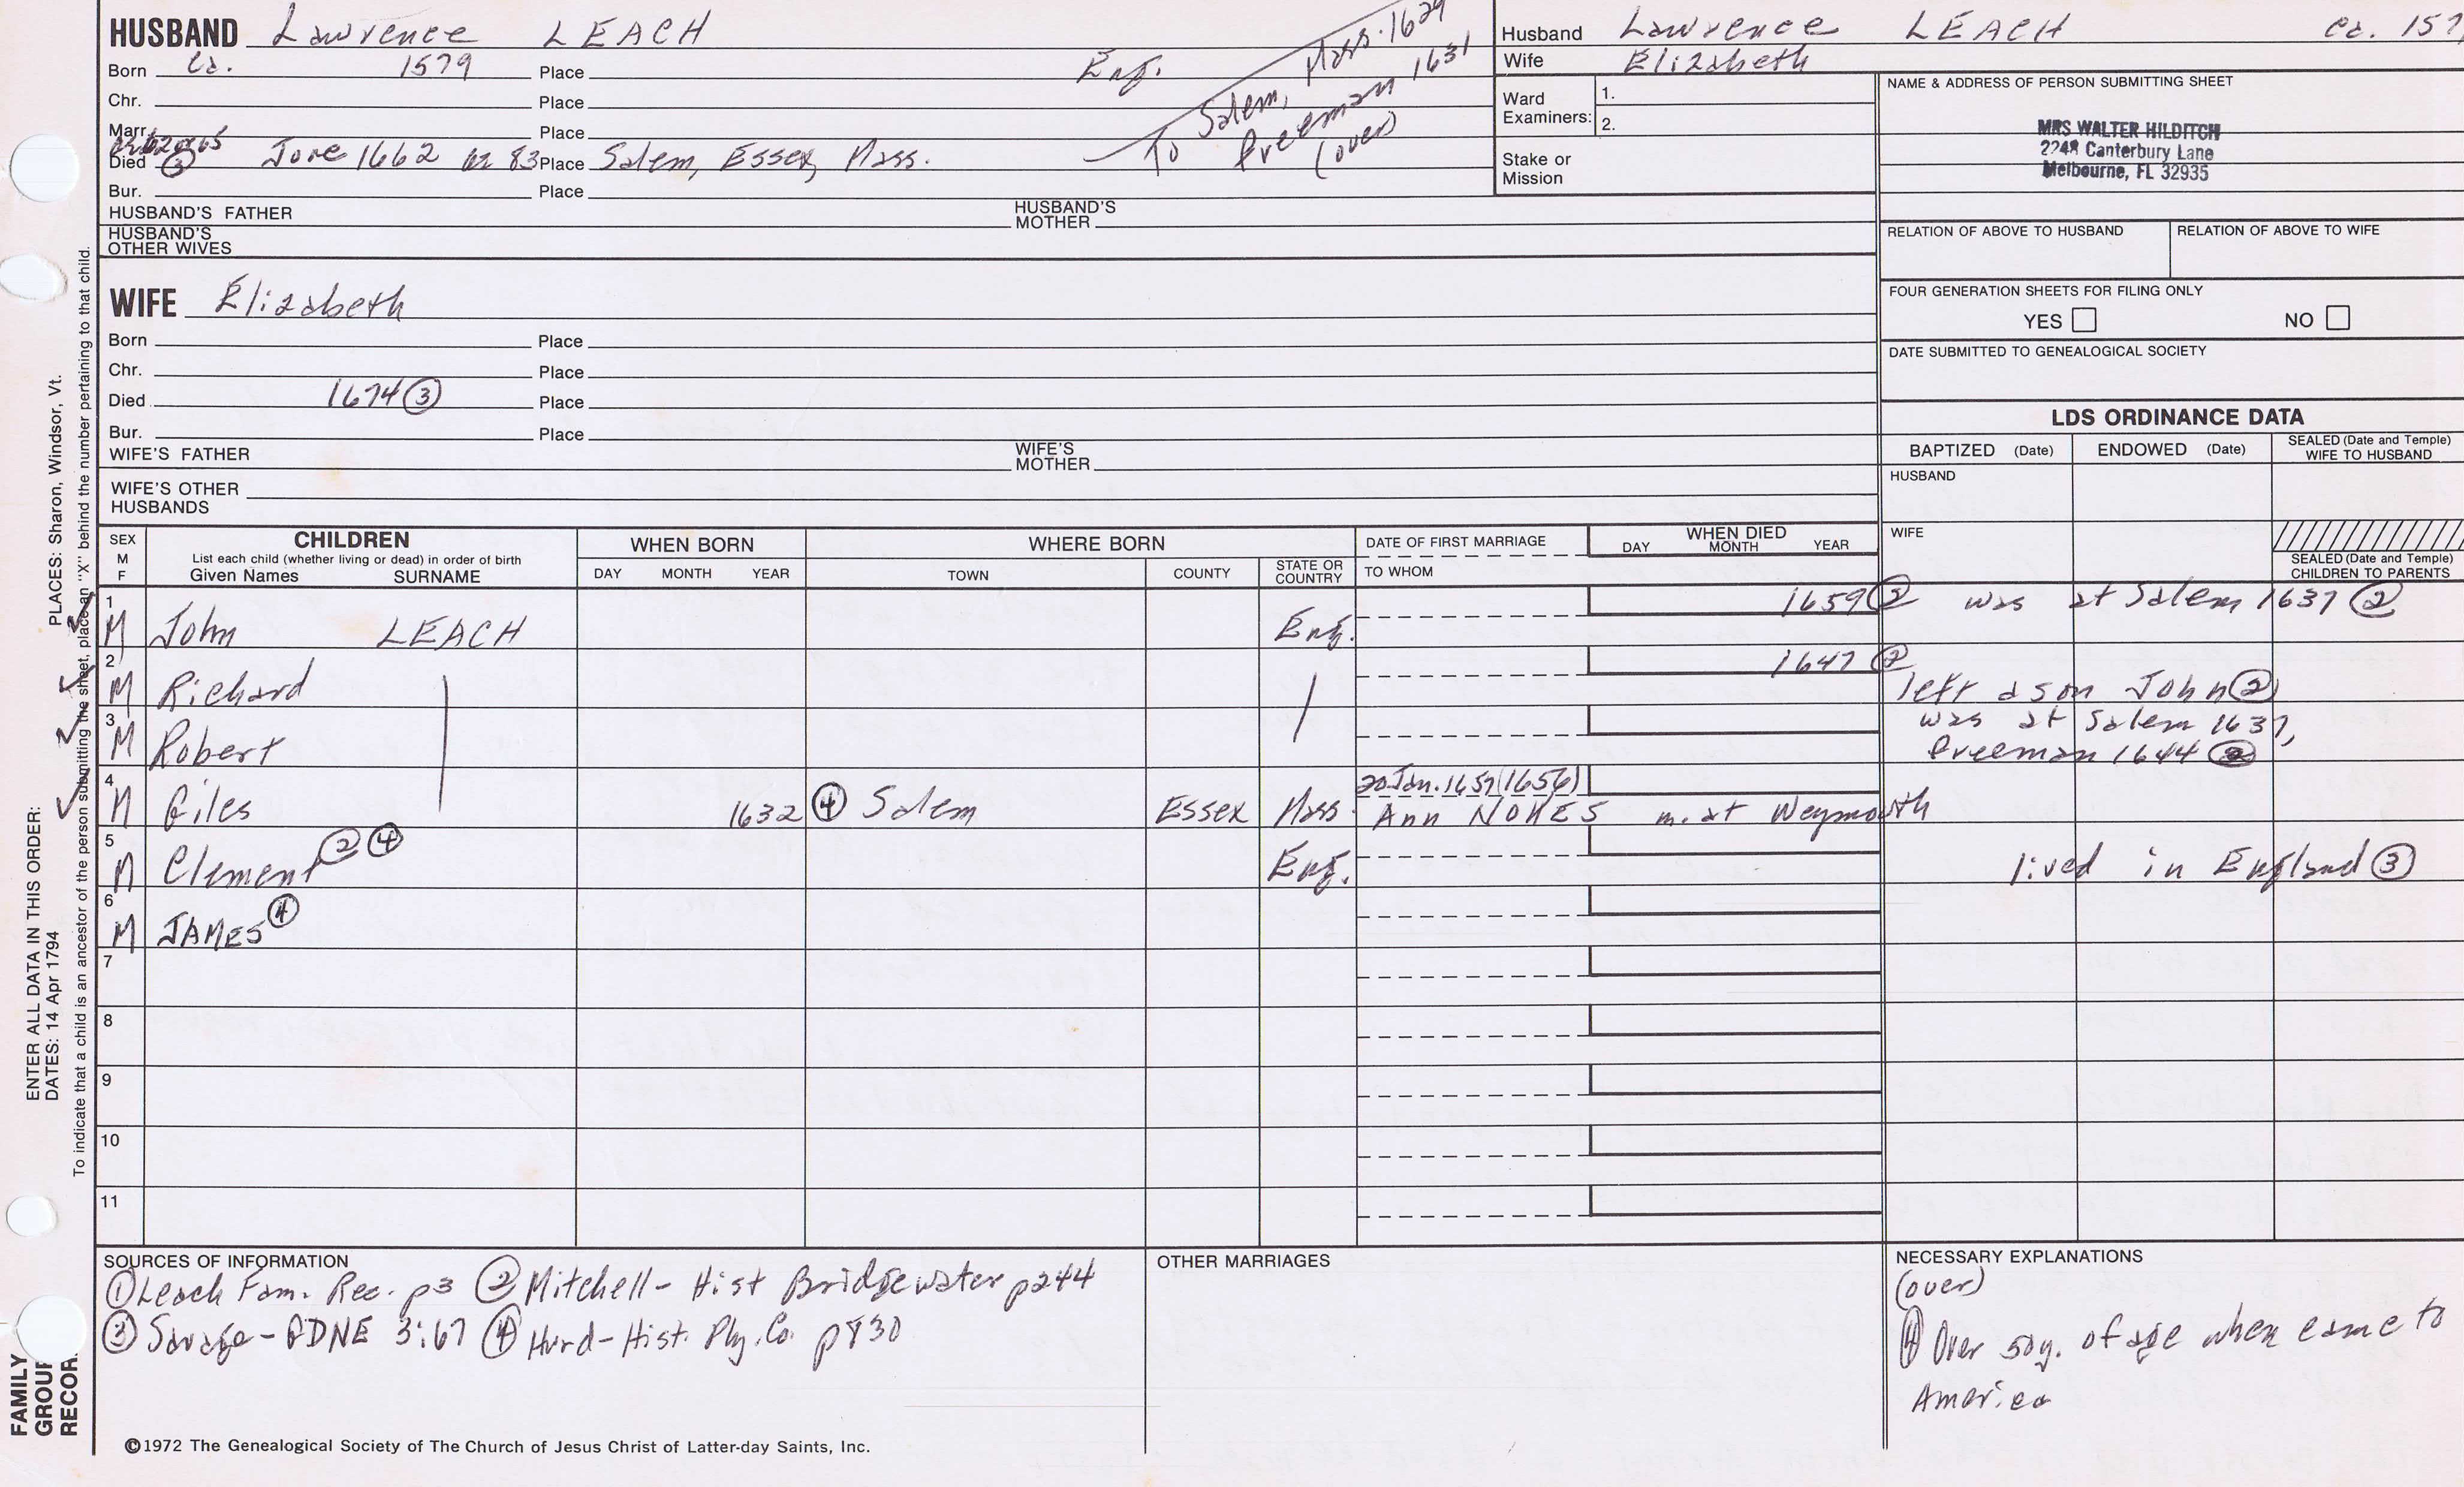 HUSBAND Lawrence LEACH
Born Ca. 1579 Place Eng.
To Salem, Mass. 1629
Freeman 1631
(over)
Chr. Place
Marr. Place
Died ③ June 1662 ae 83 Place Salem, Essex, Mass.
Bur. Place
HUSBAND'S FATHER HUSBAND'S MOTHER
HUSBAND'S OTHER WIVES
WIFE Elizabeth
Born Place
Chr. Place
Died 1674 ③ Place
Bur. Place
WIFE'S FATHER WIFE'S MOTHER
WIFE'S OTHER HUSBANDS
Husband Lawrence LEACH Ca. 157
Wife Elizabeth
Ward Examiners: 1.
2.
Stake or Mission
NAME & ADDRESS OF PERSON SUBMITTING SHEET
MRS WALTER HILDITCH
2248 Canterbury Lane
Melbourne, FL 32935
RELATION OF ABOVE TO HUSBAND RELATION OF ABOVE TO WIFE
FOUR GENERATION SHEETS FOR FILING ONLY
YES NO
DATE SUBMITTED TO GENEALOGICAL SOCIETY
LDS ORDINANCE DATA
BAPTIZED (Date) ENDOWED (Date) SEALED (Date and Temple) WIFE TO HUSBAND
HUSBAND
WIFE
SEALED (Date and Temple) CHILDREN TO PARENTS
SEX M F
CHILDREN
List each child (whether living or dead) in order of birth
Given Names SURNAME
WHEN BORN
DAY MONTH YEAR
WHERE BORN
TOWN COUNTY STATE OR COUNTRY
DATE OF FIRST MARRIAGE
TO WHOM
WHEN DIED
DAY MONTH YEAR
1 M John LEACH Eng. 1659 ② was at Salem 1637 ②
2 M Richard 1647 ② left a son John ②
3 M Robert was at Salem 1637,
freeman 1644 ②
4 M Giles 1632 ④ Salem Essex Mass. 20 Jan. 1657 (1656)
Ann NOKES m. at Weymouth
5 M Clement ② ④ Eng. lived in England ③
6 M JAMES ④
7
8
9
10
11
SOURCES OF INFORMATION
① Leach Fam. Rec. p3 ② Mitchell - Hist Bridgewater p244
③ Savage - GDNE 3:67 ④ Hurd - Hist. Ply. Co. p830
OTHER MARRIAGES
NECESSARY EXPLANATIONS
(over)
④ Over 50 y. of age when came to
America
©1972 The Genealogical Society of The Church of Jesus Christ of Latter-day Saints, Inc.
FAMILY
GROUP
RECOR
ENTER ALL DATA IN THIS ORDER:
DATES: 14 Apr 1794 PLACES: Sharon, Windsor, Vt.
To indicate that a child is an ancestor of the person submitting the sheet, place an "X" behind the number pertaining to that child.